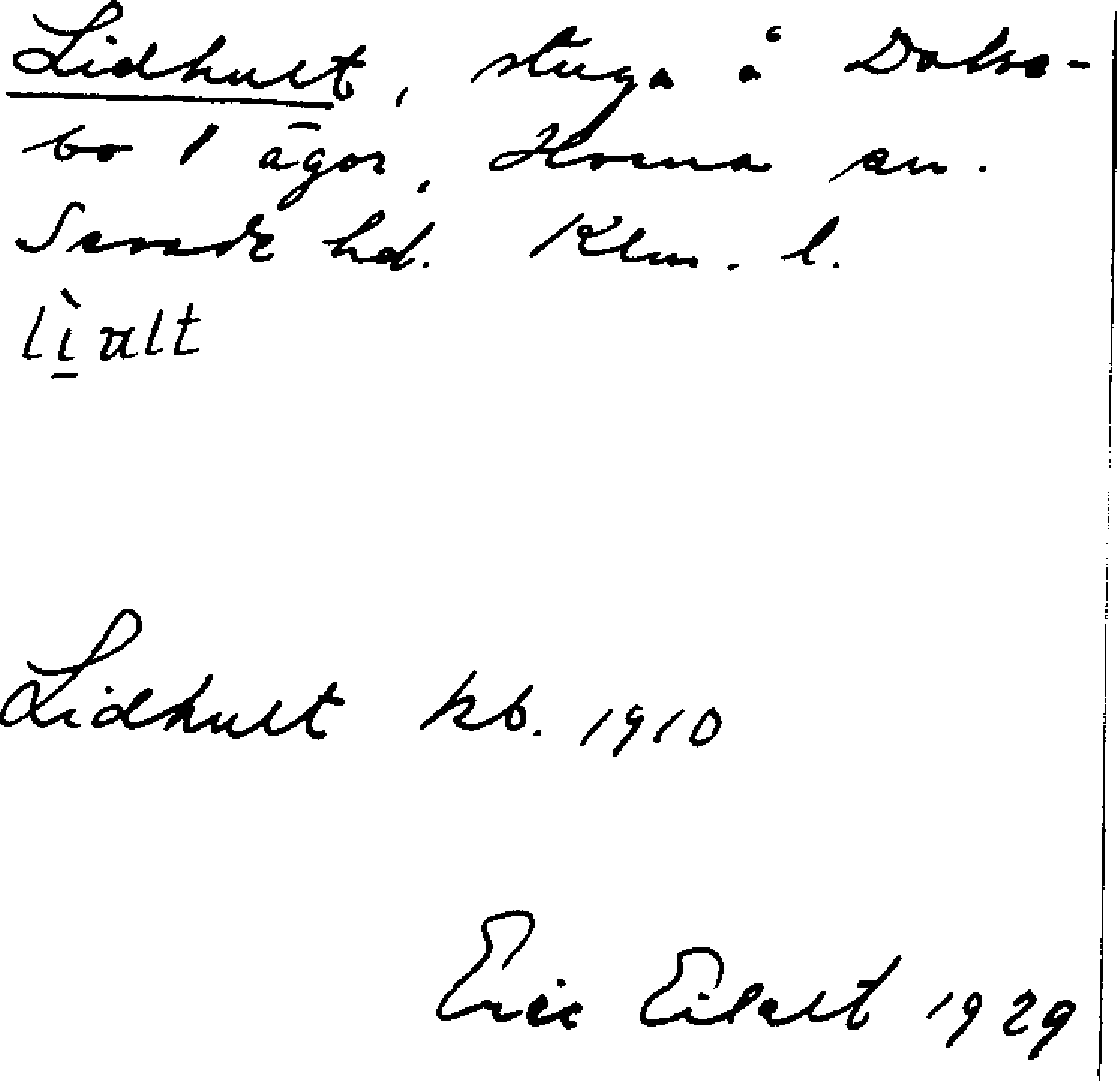 Lidhult, stuga å Dalse-
bo 1 ägor, Horna sn.
hd. Klm. l.
lìult
Lidhult kb. 1910
Eric 1929